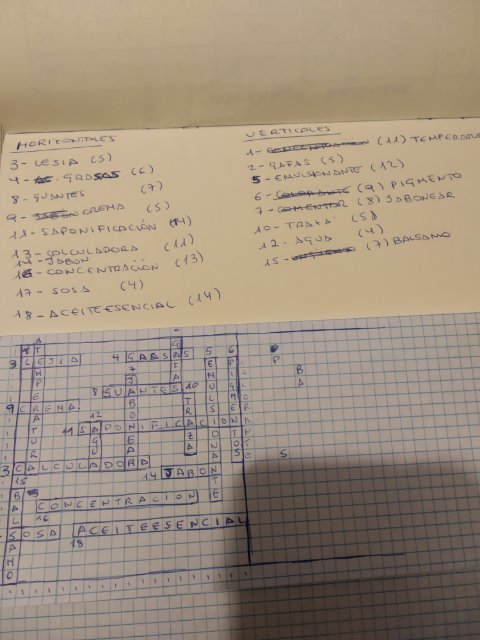 HORIZONTALES
3- LESIA (5)
4- GRASAS (6)
8- GUANTES (7)
9- CREMA (5)
11- SAPONIFICACIÓN (14)
13- CALCULADORA (11)
14- JABON
16- CONCENTRACIÓN (13)
17- SOSA (4)
18- ACEITEESENCIAL (14)
VERTICALES
1- (11) TEMPERATUR
2- GAFAS (5)
5- EMULSIONANTE (12)
6- COLORANTE (9) PIGMENTO
7- (8) JABONEAR
10- TRAZA (5)
12- AGUA (4)
15- (7) BALSAMO
3 LEJIA
4 GRASAS
5 6
8 GUANTES 10
9 CREMA
12
11 SAPONIFICACION
3 CALCULADORA
15
14 JABON
CONCENTRACION
16
SOSA ACEITEESENCIAL
18
P
B
A
S